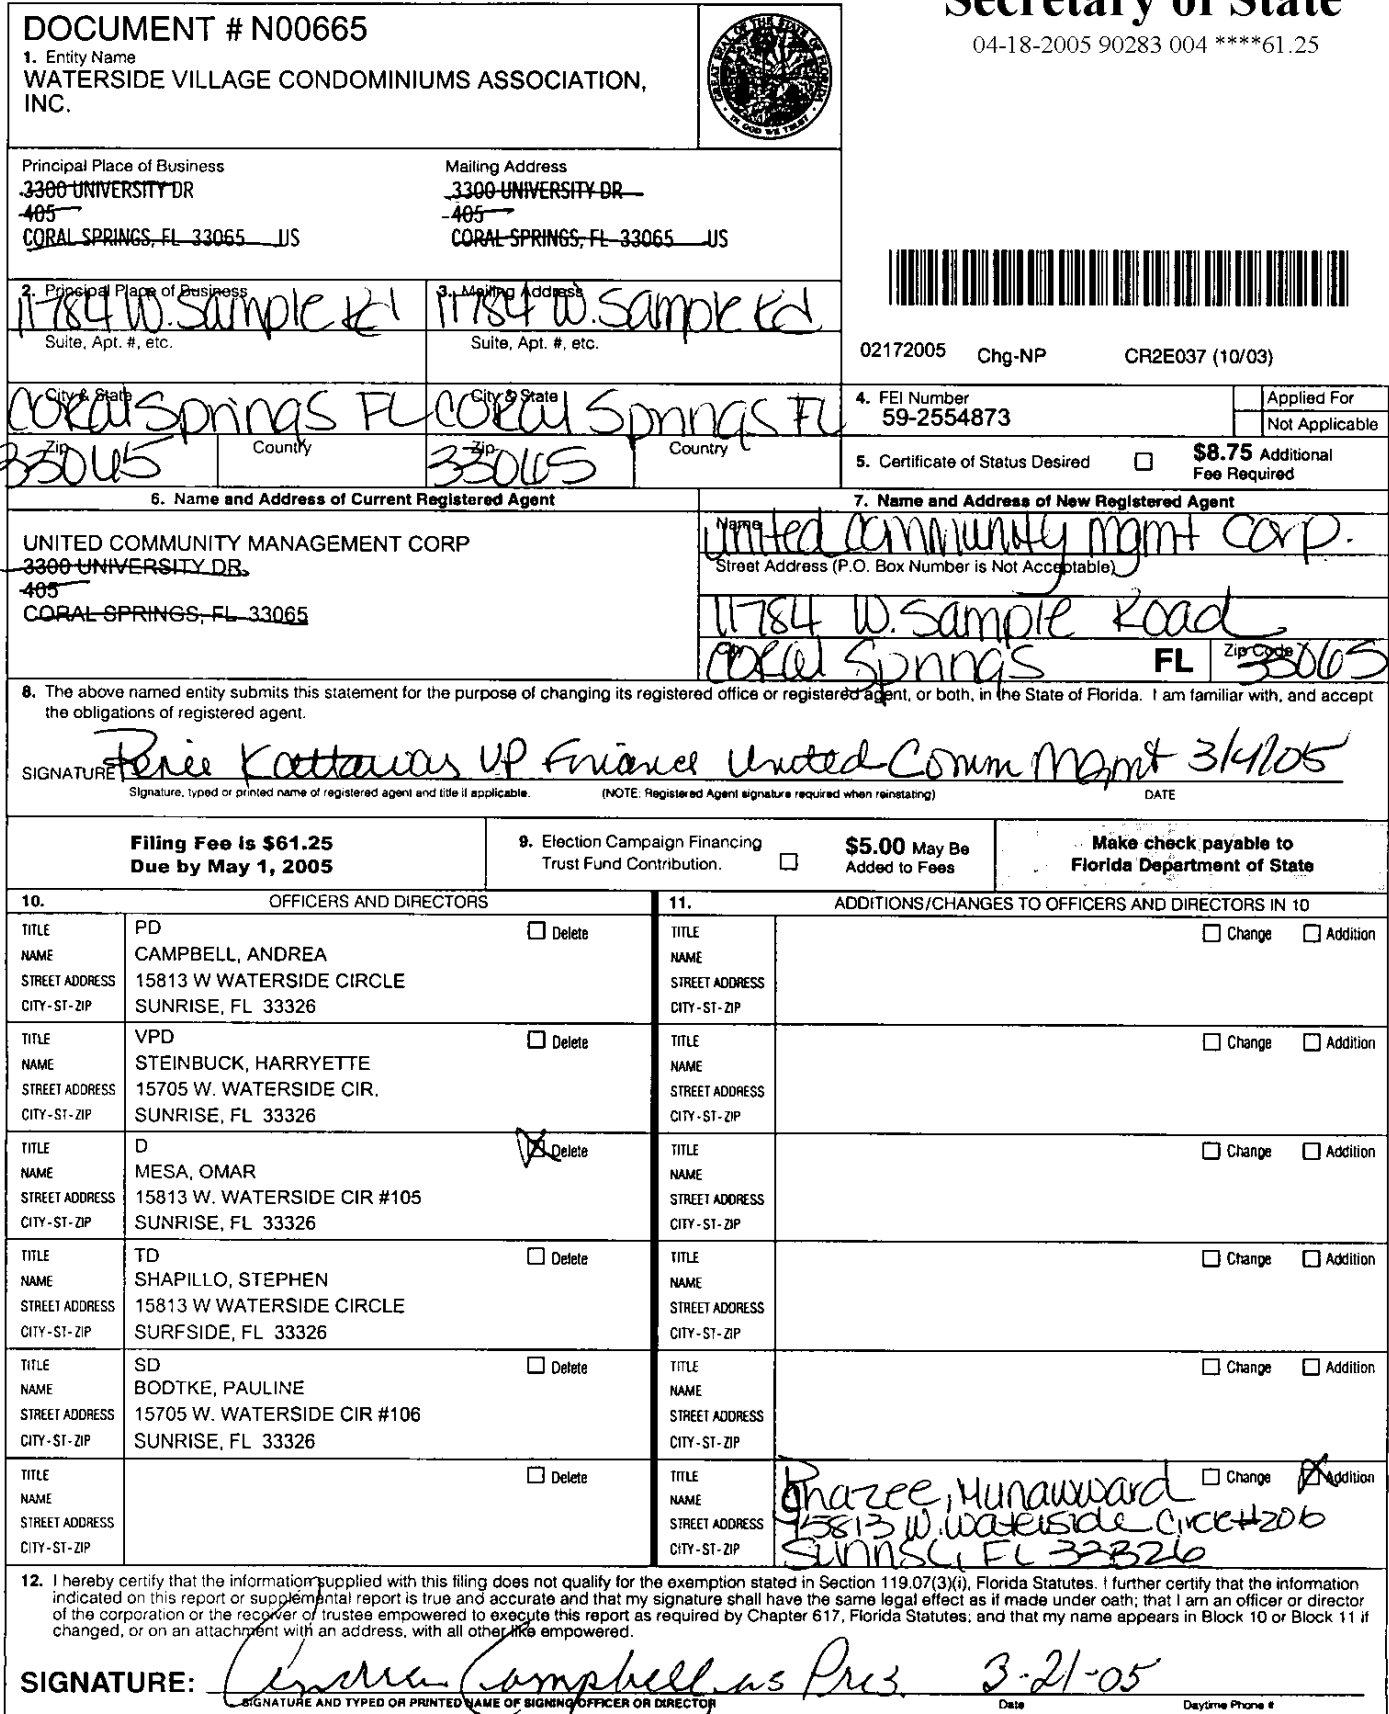 Secretary of State
04-18-2005 90283 004 ****61.25
DOCUMENT # N00665
1. Entity Name
WATERSIDE VILLAGE CONDOMINIUMS ASSOCIATION,
INC.
GREAT SEAL OF THE STATE OF FLORIDA
IN GOD WE TRUST
Principal Place of Business
3300 UNIVERSITY DR
405
CORAL SPRINGS, FL 33065 US
Mailing Address
3300 UNIVERSITY DR
405
CORAL SPRINGS, FL 33065 US
2. Principal Place of Business
11784 W. Sample Rd
Suite, Apt. #, etc.
City & State
Coral Springs FL
Zip
33065
Country
3. Mailing Address
11784 W. Sample Rd
Suite, Apt. #, etc.
City & State
Coral Springs FL
Zip
33065
Country
02172005 Chg-NP CR2E037 (10/03)
4. FEI Number
59-2554873
Applied For
Not Applicable
5. Certificate of Status Desired
$8.75 Additional
Fee Required
6. Name and Address of Current Registered Agent
UNITED COMMUNITY MANAGEMENT CORP
3300 UNIVERSITY DR
405
CORAL SPRINGS, FL 33065
7. Name and Address of New Registered Agent
Name
United Community Mgmt Corp.
Street Address (P.O. Box Number is Not Acceptable)
11784 W. Sample Road
Coral Springs FL Zip Code 33065
8. The above named entity submits this statement for the purpose of changing its registered office or registered agent, or both, in the State of Florida. I am familiar with, and accept
the obligations of registered agent.
SIGNATURE Kattawas VP Finance United Comm Mgmt 3/4/05
Signature, typed or printed name of registered agent and title if applicable. (NOTE: Registered Agent signature required when reinstating) DATE
Filing Fee is $61.25
Due by May 1, 2005
9. Election Campaign Financing
Trust Fund Contribution.
$5.00 May Be
Added to Fees
Make check payable to
Florida Department of State
10. OFFICERS AND DIRECTORS
TITLE PD Delete
NAME CAMPBELL, ANDREA
STREET ADDRESS 15813 W WATERSIDE CIRCLE
CITY-ST-ZIP SUNRISE, FL 33326
TITLE VPD Delete
NAME STEINBUCK, HARRYETTE
STREET ADDRESS 15705 W. WATERSIDE CIR.
CITY-ST-ZIP SUNRISE, FL 33326
TITLE D Delete
NAME MESA, OMAR
STREET ADDRESS 15813 W. WATERSIDE CIR #105
CITY-ST-ZIP SUNRISE, FL 33326
TITLE TD Delete
NAME SHAPILLO, STEPHEN
STREET ADDRESS 15813 W WATERSIDE CIRCLE
CITY-ST-ZIP SURFSIDE, FL 33326
TITLE SD Delete
NAME BODTKE, PAULINE
STREET ADDRESS 15705 W. WATERSIDE CIR #106
CITY-ST-ZIP SUNRISE, FL 33326
TITLE Delete
NAME
STREET ADDRESS
CITY-ST-ZIP
11. ADDITIONS/CHANGES TO OFFICERS AND DIRECTORS IN 10
TITLE Change Addition
NAME
STREET ADDRESS
CITY-ST-ZIP
TITLE Change Addition
NAME
STREET ADDRESS
CITY-ST-ZIP
TITLE Change Addition
NAME
STREET ADDRESS
CITY-ST-ZIP
TITLE Change Addition
NAME
STREET ADDRESS
CITY-ST-ZIP
TITLE Change Addition
NAME
STREET ADDRESS
CITY-ST-ZIP
TITLE Change Addition
NAME Munawward
STREET ADDRESS 15813 W. Waterside Circe #206
CITY-ST-ZIP FL
12. I hereby certify that the information supplied with this filing does not qualify for the exemption stated in Section 119.07(3)(i), Florida Statutes. I further certify that the information
indicated on this report or supplemental report is true and accurate and that my signature shall have the same legal effect as if made under oath; that I am an officer or director
of the corporation or the receiver or trustee empowered to execute this report as required by Chapter 617, Florida Statutes; and that my name appears in Block 10 or Block 11 if
changed, or on an attachment with an address, with all other like empowered.
SIGNATURE: Andrea Campbell as Pres. 3-21-05
SIGNATURE AND TYPED OR PRINTED NAME OF SIGNING OFFICER OR DIRECTOR Date Daytime Phone #